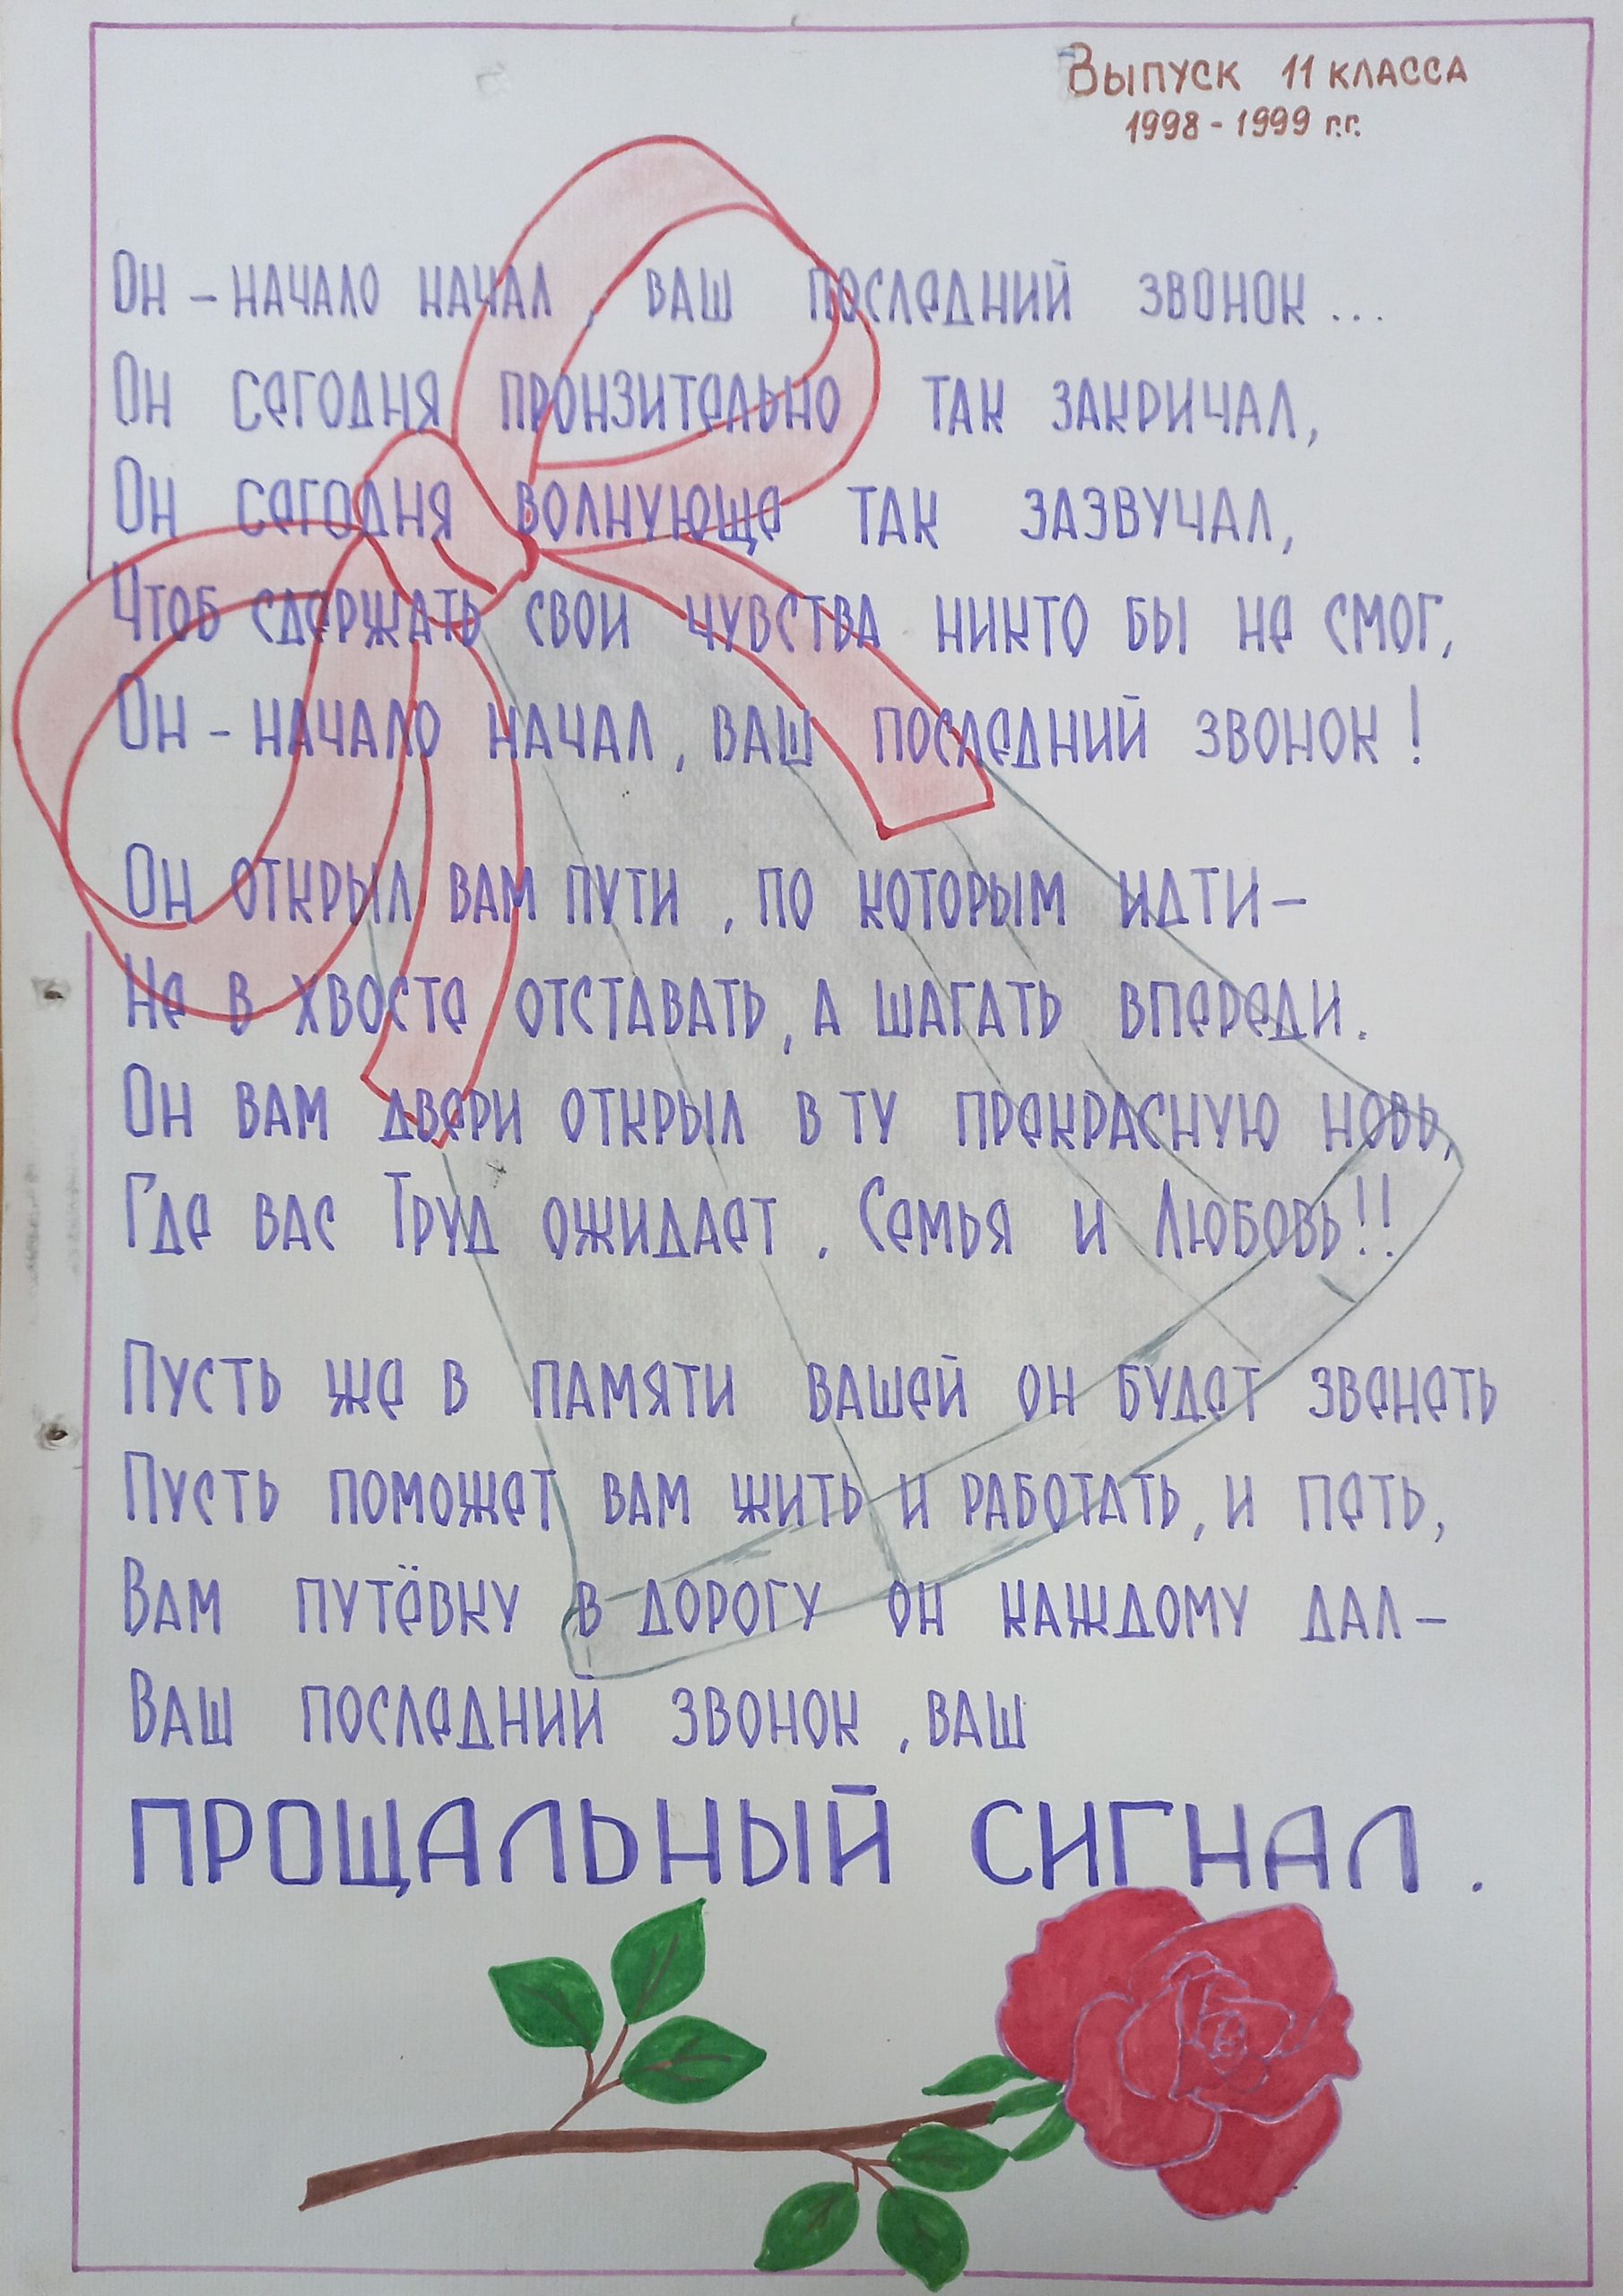 Выпуск 11 класса
1998 - 1999 г.г.
Он - начало начал, ваш последний звонок...
Он сегодня пронзительно так закричал,
Он сегодня волнующе так зазвучал,
Чтоб сдержать свои чувства никто бы не смог,
Он - начало начал, ваш последний звонок!
Он открыл вам пути, по которым идти -
Не в хвосте отставать, а шагать впереди.
Он вам двери открыл в ту прекрасную новь,
Где вас Труд ожидает, Семья и Любовь!!
Пусть же в памяти вашей он будет звенеть
Пусть поможет вам жить и работать, и петь,
Вам путёвку в дорогу он каждому дал -
Ваш последний звонок, ваш
ПРОЩАЛЬНЫЙ СИГНАЛ.